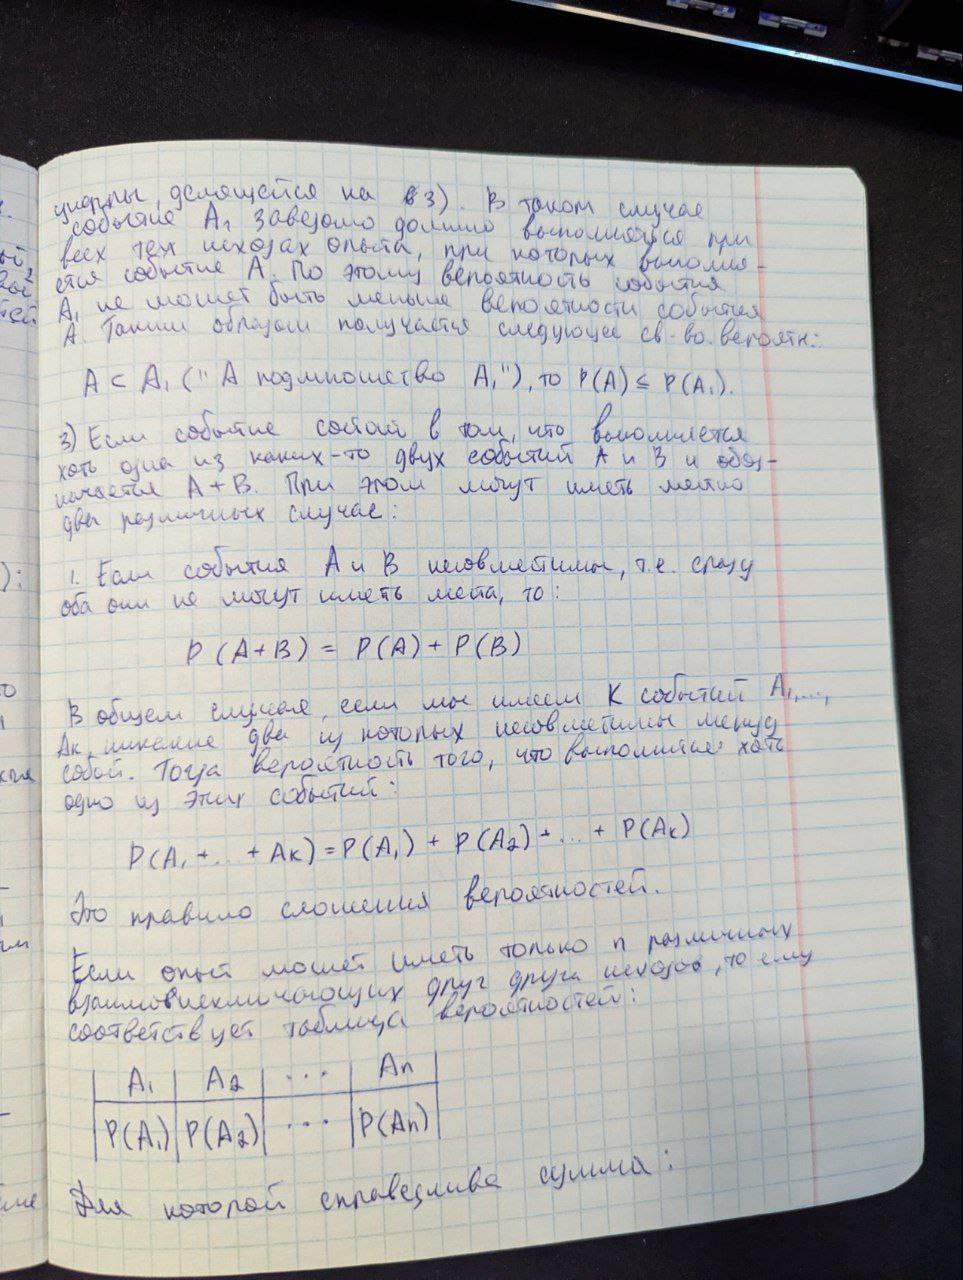 цифры, делящейся на 3). В таком случае
событие A₁ заведомо должно выполняться при
всех тех исходах опыта, при которых выполня-
ется событие A. По этому вероятность события
A₁ не может быть меньше вероятности события
A. Таким образом получается следующее св-во вероятн:
A ⊂ A₁ ("A подмножество A₁"), то P(A) ≤ P(A₁).
3) Если событие состоит в том, что выполняется
хоть одна из каких-то двух событий A и B и обоз-
начается A+B. При этом могут иметь место
два различных случае:
1. Если события A и B несовметимы, т.е. сразу
оба они не могут иметь места, то:
P(A+B) = P(A) + P(B)
В общем случае, если мы имеем K событий A₁,...,
Aк, никакие два из которых несовметимы между
собой. Тогда вероятность того, что выполнится хоть
одно из этих событий:
P(A₁ + ... + Aк) = P(A₁) + P(A₂) + ... + P(Aк)
Это правило сложения вероятностей.
Если опыт может иметь только n различных
взаимовисключающих друг друга исходов, то ему
соответствует таблица вероятностей:
A₁ | A₂ | ... | An
P(A₁) | P(A₂) | ... | P(An)
Для которой справедлива сумма: